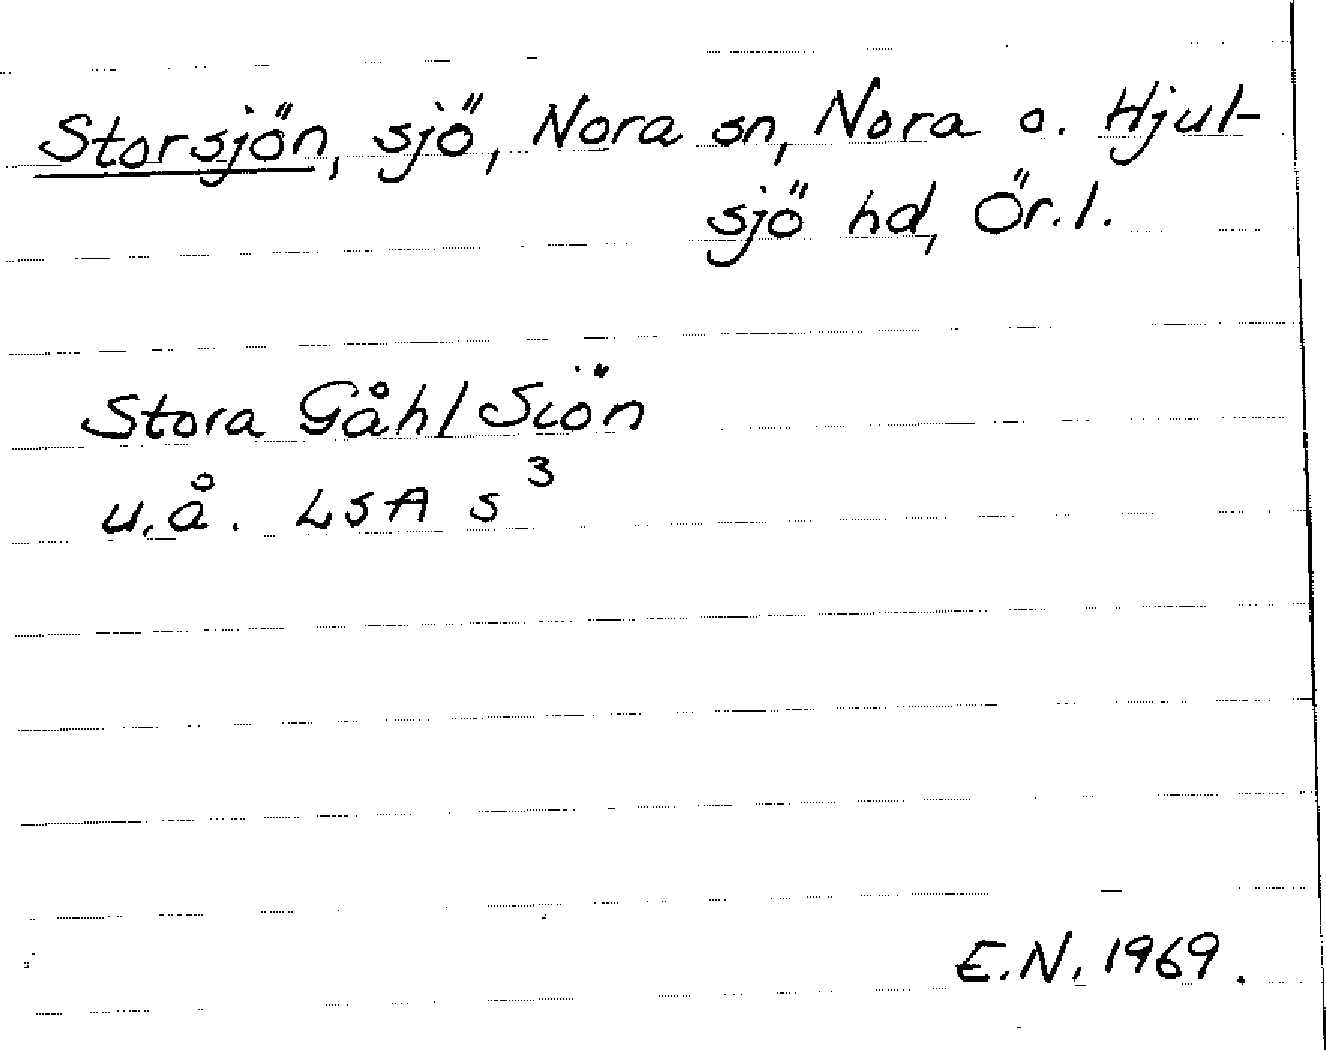 Storsjön, sjö, Nora sn, Nora o. Hjul-
sjö hd, Ör.l.
Stora Gåhl Siön
u.å. LSA s³
E.N. 1969.